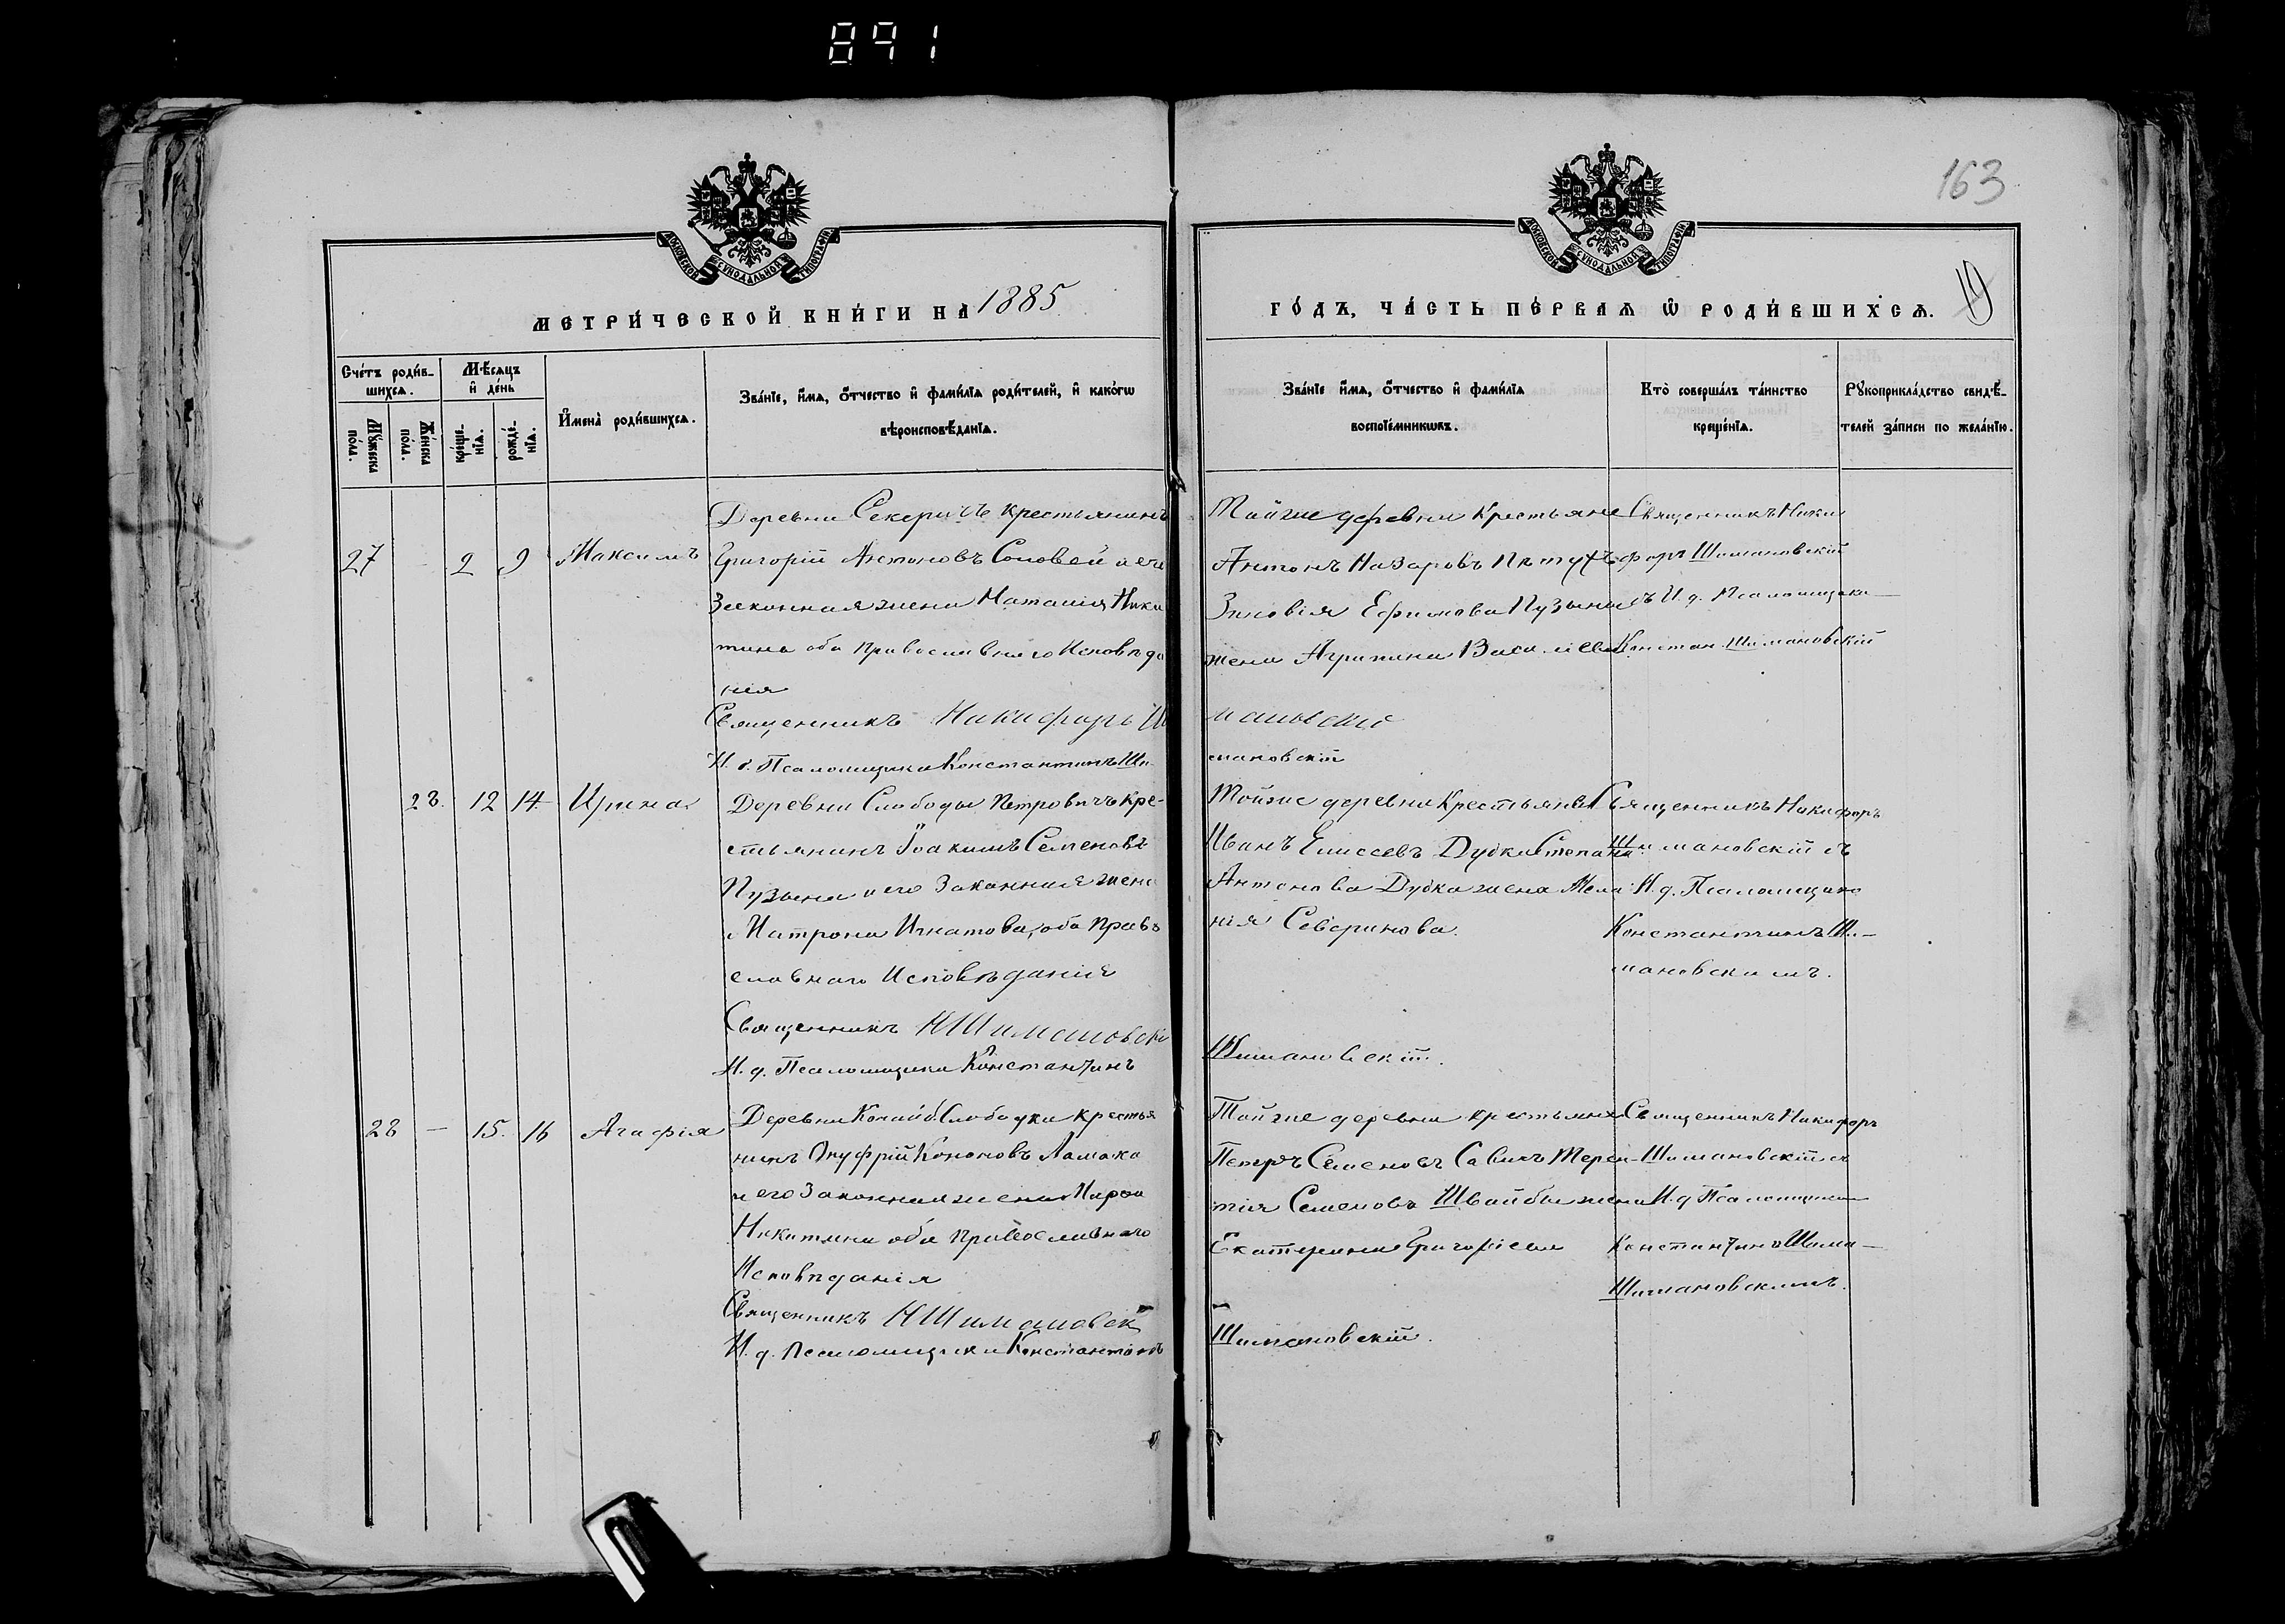 891
163
МОСКОВСКОЙ СѴНОДАЛЬНОЙ ТИПОГРАФІИ
МОСКОВСКОЙ СѴНОДАЛЬНОЙ ТИПОГРАФІИ
МЕТРИ́ЧЕСКОЙ КНИ́ГИ НА̀ 1885
ГО́ДЪ, ЧА́СТЬ ПЕ́РВАѦ Ѡ҆ РОДИ́ВШИХСѦ. 19
Сче́тъ роди́в-
шихсѧ.
Мѣ́сѧцъ
и҆ де́нь
Мꙋ́жеска по́ла.
Же́нска по́ла.
кр҃ще́-нїѧ.
рожде́-нїѧ.
И҆мена̀ роди́вшихсѧ.
Зва́нїе, и҆́мѧ, ѻ҆́тчество и҆ фами́лїѧ роди́телей, и҆ како́гѡ
вѣроисповѣ́данїѧ.
Зва́нїе и҆́мѧ, ѻ҆́тчество и҆ фами́лїѧ
воспрїе́мникѡвъ.
Кто̀ соверша́лъ та́инство
креще́нїѧ.
Рꙋкоприкла́дство свидѣ́-
телей за́писи по жела́нїю.
27 - 2 9 Максимъ
Деревни Секеричъ крестьянинъ
Григорій Антоновъ Соловей и его
Законная жена Наталія Ники
тина оба Православнаго Исповѣда
нія
Священникъ Никифоръ Ши
И. д. Псаломщика Константинъ Ши-
Тойже деревни Крестьяне
Антонъ Назаровъ Пѣтухъ
Зиновія Ефимова Пузыни
жена Агрипина Васильева
мановскій
мановскій
Священникъ Ники
форъ Шимановскій
съ И. д. Псаломщика
Констан. Шимановскій
28. 12 14. Ирина
Деревни Слободы Петровичъ Кре-
стьянинъ Іоакимъ Семеновъ
Пузыня и его Законная жена
Матрона Игнатова, оба Право
славнаго Исповѣданія
Священникъ Н Шимановскі
И. д. Псаломщика Константинъ
Тойже деревни Крестьяне
Иванъ Елисеевъ Дудка Степана
Антонова Дудка жена Мела-
нія Северинова.
Шимановскій.
Священникъ Никифоръ
Шимановскій съ
И. д. Псаломщика
Константинъ Ши-
мановскимъ.
28 — 15. 16 Агафія
Деревни Слободки крестья
нинъ Онуфрій Кононовъ Ламака
и его Законная жена
Никитина оба Православнаго
Исповѣданія
Священникъ Н Шимановскі
И. д. Псаломщика Константинъ
Тойже деревни крестьяне
Петръ Семеновъ Савикъ Терен-
тія Семеновъ Швайбы жена
Екатерина Григоріева
Шимановскій.
Священникъ Никифоръ
Шимановскій съ
И. д Псаломщика
Константинъ Шима-
Шимановскимъ.